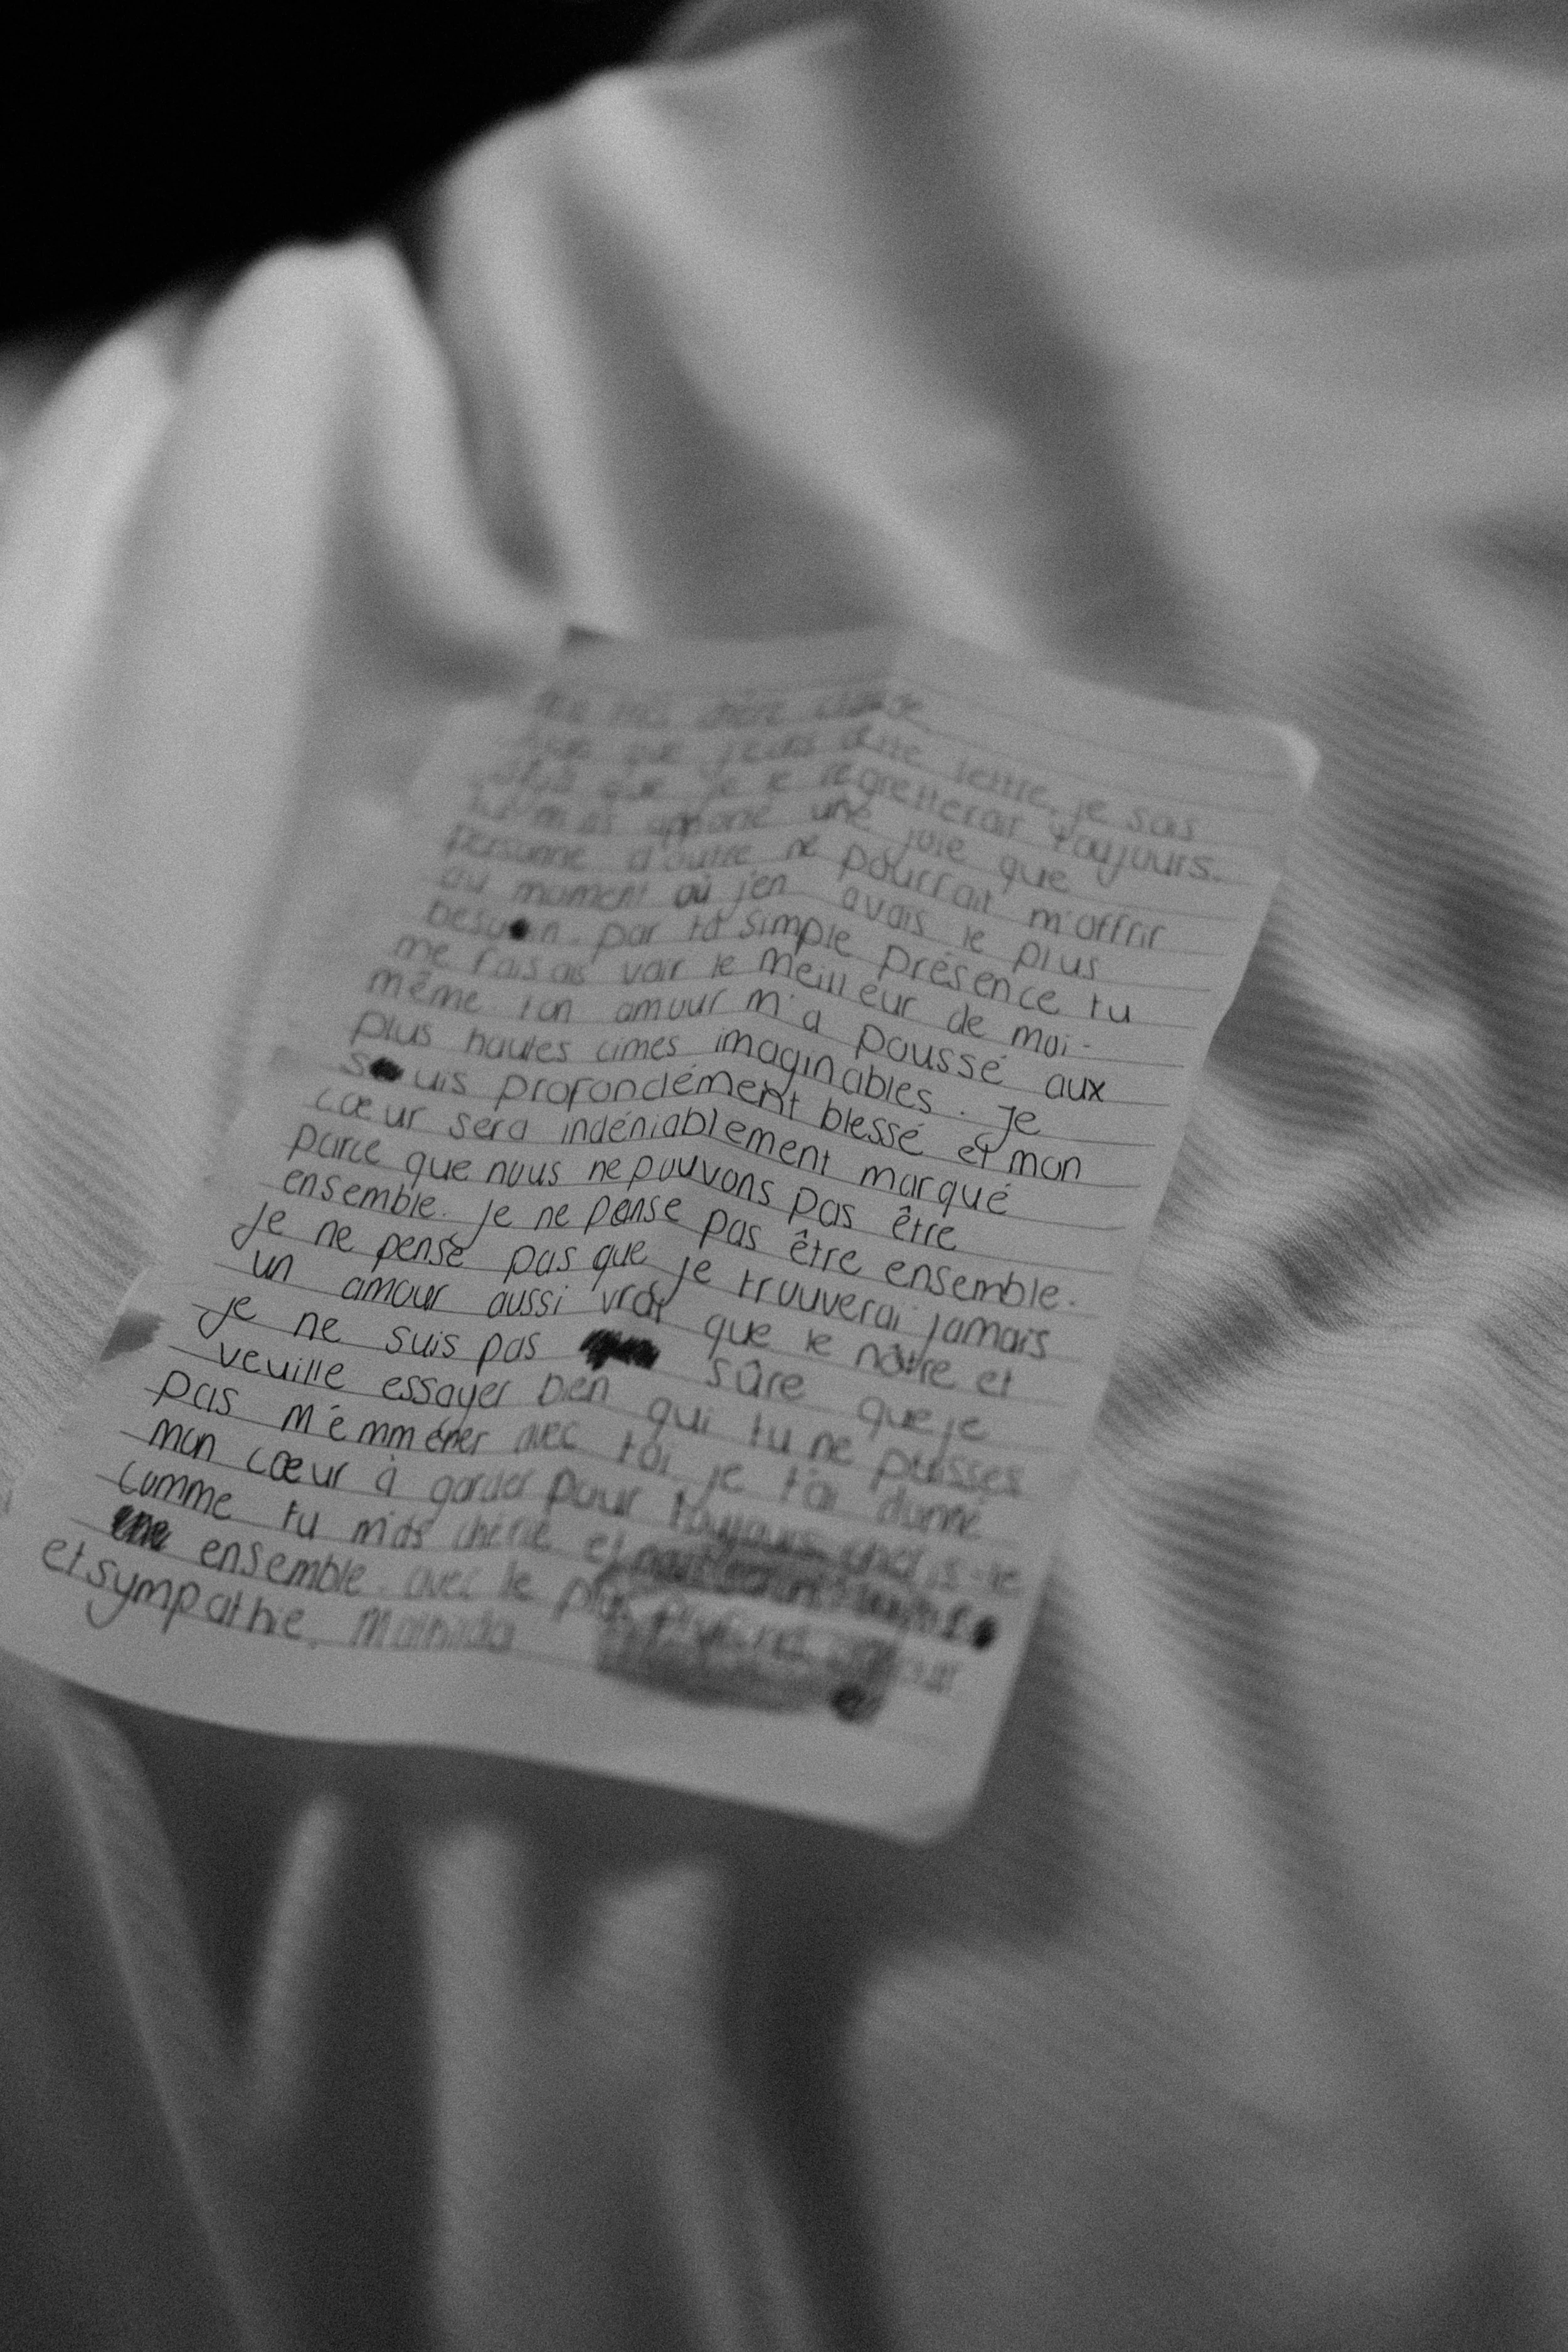 chère
que j'écris cette lettre, je sais
que je le regretterai toujours.
tu m'as apporté une joie que
personne d'autre ne pourrait m'offrir
au moment où j'en avais le plus
besoin. par ta simple présence tu
me faisais voir le meilleur de moi-
même. ton amour m'a poussé aux
plus hautes cimes imaginables. Je
suis profondément blessé et mon
cœur sera indéniablement marqué
parce que nous ne pouvons pas être
ensemble. Je ne pense pas être ensemble.
Je ne pense pas que je trouverai jamais
un amour aussi vrai que le nôtre et
Je ne suis pas sûre que je
veuille essayer bien qui tu ne puisses
pas m'emméner avec toi je t'ai donné
mon cœur à garder pour toujours. chéris-le
comme tu m'as chérie et
ensemble. avec le plus profond amour
et sympathie,